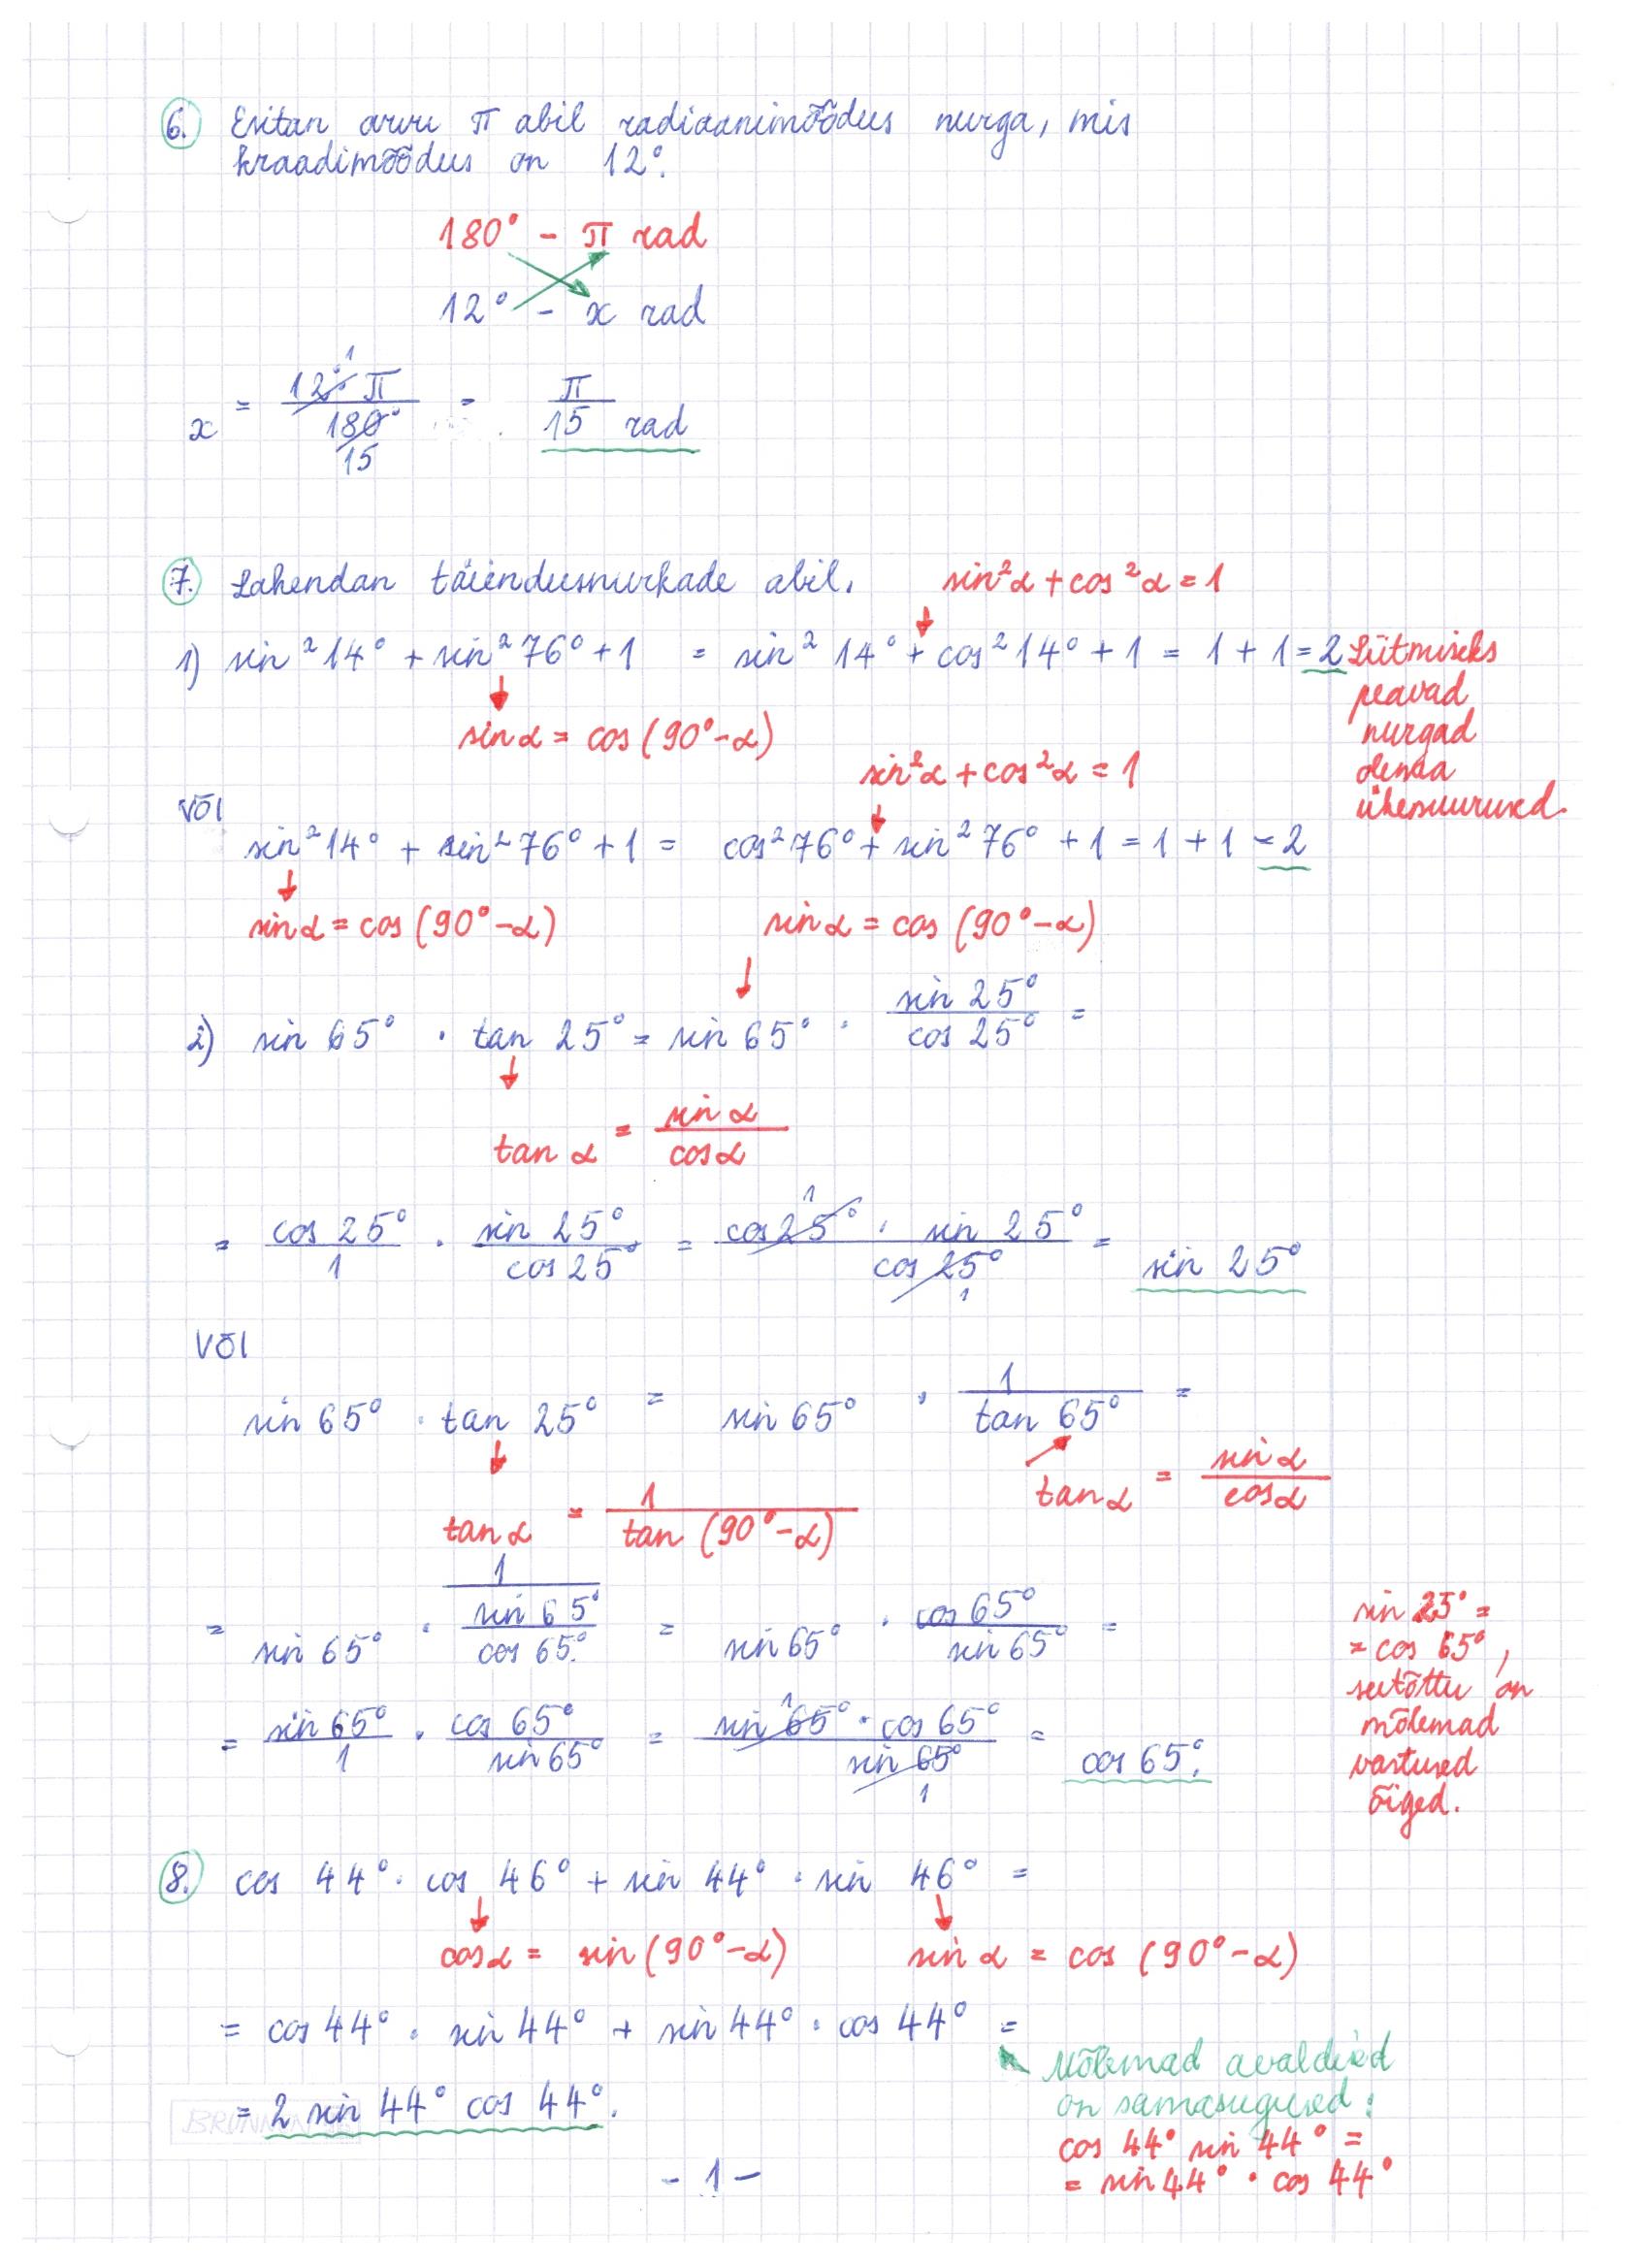 6. Esitan arvu π abil radiaanimõõdus nurga, mis
kraadimõõdus on 12°.
180° - π rad
12° - x rad
x = 12°·π / 180° = π / 15 rad
1
15
7. Lahendan täiendusnurkade abil. sin²α + cos²α = 1
1) sin²14° + sin²76° + 1 = sin²14° + cos²14° + 1 = 1 + 1 = 2
Liitmiseks
peavad
nurgad
olema
ühesuurused.
sinα = cos(90°-α)
sin²α + cos²α = 1
VÕI
sin²14° + sin²76° + 1 = cos²76° + sin²76° + 1 = 1 + 1 = 2
sinα = cos(90°-α) sinα = cos(90°-α)
2) sin 65° · tan 25° = sin 65° · sin 25° / cos 25° =
tan α = sin α / cos α
= cos 25° / 1 · sin 25° / cos 25° = cos 25° · sin 25° / cos 25° = sin 25°
1
1
VÕI
sin 65° · tan 25° = sin 65° · 1 / tan 65° =
tan α = 1 / tan (90°-α) tan α = sin α / cos α
= sin 65° · 1 / sin 65° / cos 65° = sin 65° · cos 65° / sin 65° =
= sin 65° / 1 · cos 65° / sin 65° = sin 65° · cos 65° / sin 65° = cos 65°.
1
1
sin 25° =
= cos 65°,
seetõttu on
mõlemad
vastused
õiged.
8. cos 44° · cos 46° + sin 44° · sin 46° =
cosα = sin(90°-α) sin α = cos (90°-α)
= cos 44° · sin 44° + sin 44° · cos 44° =
= 2 sin 44° cos 44°.
Mõlemad avaldised
on samasugused:
cos 44° sin 44° =
= sin 44° · cos 44°
BRUNNEN
- 1 -